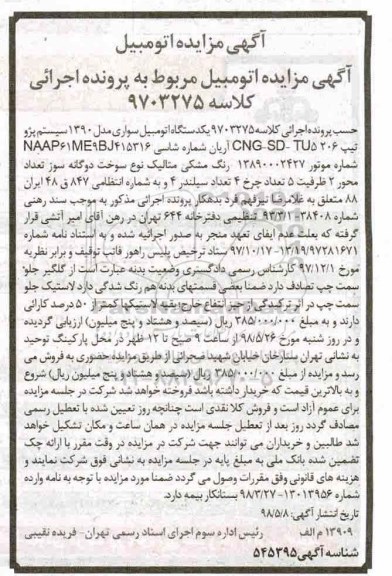 آگهی مزایده اتومبیل
آگهی مزایده اتومبیل مربوط به پرونده اجرائی
کلاسه ۹۷۰۳۲۷۵
حسب پرونده اجرائی کلاسه ۹۷۰۳۲۷۵ یکدستگاه اتومبیل سواری مدل ۱۳۹۰ سیستم پژو
تیپ ۲۰۶ CNG-SD-TU۵ آریان شماره شاسی NAAP۶۱ME۹BJ۴۱۵۳۱۶
شماره موتور ۱۳۸۹۰۰۰۲۴۲۷ رنگ مشکی متالیک نوع سوخت دوگانه سوز تعداد
محور ۲ ظرفیت ۵ تعداد چرخ ۴ تعداد سیلندر ۴ و به شماره انتظامی ۸۴۷ ق ۴۸ ایران
۸۸ متعلق به غلامرضا نیرفهم فرد بدهکار پرونده اجرائی مذکور به موجب سند رهنی
شماره ۳۸۴۰۸-۹۳/۳/۱ تنظیمی دفترخانه ۶۴۴ تهران در رهن آقای امیر آتشی قرار
گرفته که بعلت عدم ایفای تعهد منجر به صدور اجرائیه شده و به استناد نامه شماره
۱۳/۱۹/۹۷۲۸۱۶۷۱-۹۷/۱۰/۱۷ ستاد ترخیص پلیس راهور فاتب توقیف و برابر نظریه
مورخ ۹۷/۱۲/۱ کارشناس رسمی دادگستری وضعیت بدنه عبارت است از گلگیر جلو-
سمت چپ تصادف دارد ضمنا بعضی قسمتهای بدنه هم رنگ شدگی دارد لاستیک جلو
سمت چپ در اثر ترکیدگی از حیز انتفاع خارج بقیه لاستیکها کمتر از ۵۰ درصد کارائی
دارند و به مبلغ ۳۸۵/۰۰۰/۰۰۰ ریال (سیصد و هشتاد و پنج میلیون) ارزیابی گردیده
و در روز شنبه مورخ ۹۸/۵/۲۶ از ساعت ۹ صبح تا ۱۲ ظهر در محل پارکینگ توحید
به نشانی تهران ستارخان خیابان شهید صحرائی از طریق مزایده حضوری به فروش می
رسد و مزایده از مبلغ ۳۸۵/۰۰۰/۰۰۰ ریال (سیصد و هشتاد و پنج میلیون ریال) شروع
و به بالاترین قیمت که خریدار داشته باشد فروخته خواهد شد شرکت در جلسه مزایده
برای عموم آزاد است و فروش کلا نقدی است چنانچه روز تعیین شده با تعطیل رسمی
مصادف گردد روز بعد از تعطیل جلسه مزایده در همان ساعت و مکان تشکیل خواهد
شد طالبین و خریداران می توانند جهت شرکت در مزایده در وقت مقرر با ارائه چک
تضمین شده بانک ملی به مبلغ پایه در جلسه مزایده به نشانی فوق شرکت نمایند و
هزینه های قانونی وفق مقررات وصول می گردد ضمنا مورد مزایده با توجه به نامه وارده
شماره ۱۳۰۱۳۹۵۶-۹۸/۳/۲۷ بستانکار بیمه دارد.
تاریخ انتشار آگهی: ۹۸/۵/۸
۱۳۹۰۹ م الف رئیس اداره سوم اجرای اسناد رسمی تهران - فریده نقیبی
شناسه آگهی ۵۴۵۳۹۵